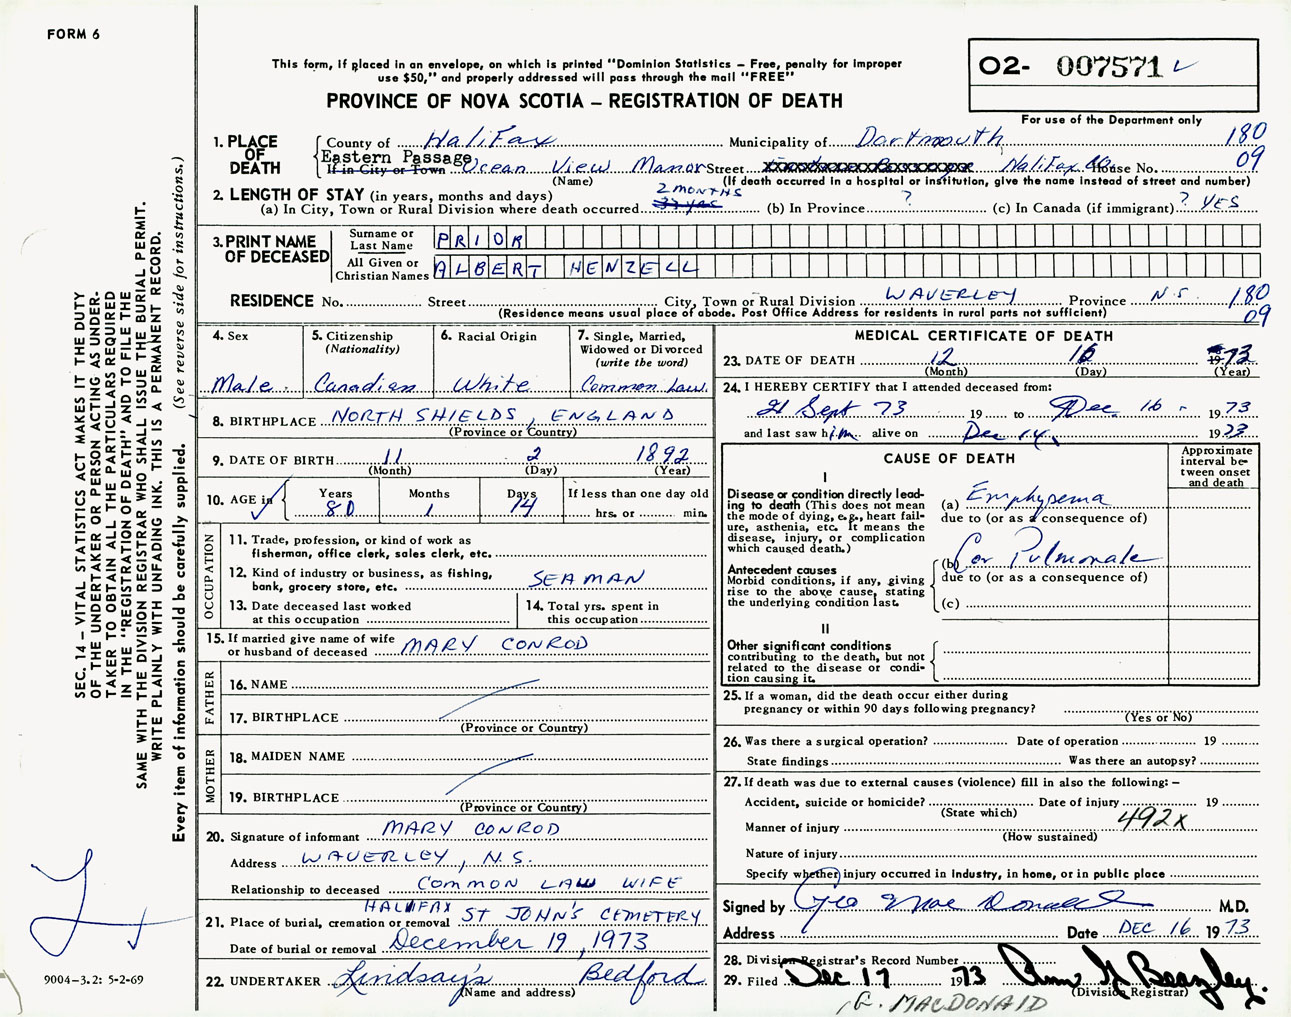 FORM 6
This form, if placed in an envelope, on which is printed "Dominion Statistics – Free, penalty for improper
use $50," and properly addressed will pass through the mail "FREE"
PROVINCE OF NOVA SCOTIA – REGISTRATION OF DEATH
02- 007571
For use of the Department only
1. PLACE OF DEATH
County of Halifax Municipality of Dartmouth 180
Eastern Passage
If in City or Town Ocean View Manor Street Halifax Co. House No. 09
(Name) (If death occurred in a hospital or institution, give the name instead of street and number)
2. LENGTH OF STAY (in years, months and days) 2 MONTHS
(a) In City, Town or Rural Division where death occurred 33 yrs (b) In Province ? (c) In Canada (if immigrant) ? YES
3. PRINT NAME OF DECEASED
Surname or Last Name PRIOR
All Given or Christian Names ALBERT HENZELL
RESIDENCE No. Street City, Town or Rural Division WAVERLEY Province N.S. 180
(Residence means usual place of abode. Post Office Address for residents in rural parts not sufficient) 09
4. Sex Male
5. Citizenship (Nationality) Canadian
6. Racial Origin White
7. Single, Married, Widowed or Divorced (write the word) Common Law
8. BIRTHPLACE NORTH SHIELDS, ENGLAND
(Province or Country)
9. DATE OF BIRTH 11 2 1892
(Month) (Day) (Year)
10. AGE in Years 80 Months 1 Days 14 If less than one day old hrs. or min.
OCCUPATION
11. Trade, profession, or kind of work as
fisherman, office clerk, sales clerk, etc.
12. Kind of industry or business, as fishing,
bank, grocery store, etc. SEAMAN
13. Date deceased last worked
at this occupation
14. Total yrs. spent in
this occupation
15. If married give name of wife
or husband of deceased MARY CONROD
FATHER
16. NAME
17. BIRTHPLACE
(Province or Country)
MOTHER
18. MAIDEN NAME
19. BIRTHPLACE
(Province or Country)
20. Signature of informant MARY CONROD
Address WAVERLEY, N.S.
Relationship to deceased COMMON LAW WIFE
HALIFAX
21. Place of burial, cremation or removal ST JOHN'S CEMETERY
Date of burial or removal December 19, 1973
22. UNDERTAKER Lindsay's Bedford
(Name and address)
MEDICAL CERTIFICATE OF DEATH
23. DATE OF DEATH 12 16 1973
(Month) (Day) (Year)
24. I HEREBY CERTIFY that I attended deceased from:
21 Sept 73 19 to Dec. 16 1973
and last saw him alive on Dec 14 1973
CAUSE OF DEATH
Approximate interval between onset and death
I
Disease or condition directly lead-
ing to death (This does not mean
the mode of dying, e.g., heart fail-
ure, asthenia, etc. It means the
disease, injury, or complication
which caused death.)
(a) Emphysema
due to (or as a consequence of)
Antecedent causes
Morbid conditions, if any, giving
rise to the above cause, stating
the underlying condition last.
(b) Cor Pulmonale
due to (or as a consequence of)
(c)
II
Other significant conditions
contributing to the death, but not
related to the disease or condi-
tion causing it.
25. If a woman, did the death occur either during
pregnancy or within 90 days following pregnancy?
(Yes or No)
26. Was there a surgical operation? Date of operation 19
State findings Was there an autopsy?
27. If death was due to external causes (violence) fill in also the following: –
Accident, suicide or homicide? Date of injury 19
(State which)
Manner of injury 492X
(How sustained)
Nature of injury
Specify whether injury occurred in Industry, in home, or in public place
Signed by Geo MacDonald M.D.
Address Date DEC 16 1973
28. Division Registrar's Record Number
29. Filed Dec 17 1973 Ann G Beazley.
(Division Registrar)
G. MACDONALD
SEC. 14 – VITAL STATISTICS ACT MAKES IT THE DUTY
OF THE UNDERTAKER OR PERSON ACTING AS UNDER-
TAKER TO OBTAIN ALL THE PARTICULARS REQUIRED
IN THE "REGISTRATION OF DEATH" AND TO FILE THE
SAME WITH THE DIVISION REGISTRAR WHO SHALL ISSUE THE BURIAL PERMIT.
WRITE PLAINLY WITH UNFADING INK. THIS IS A PERMANENT RECORD.
Every item of information should be carefully supplied. (See reverse side for instructions.)
9004–3.2: 5-2-69